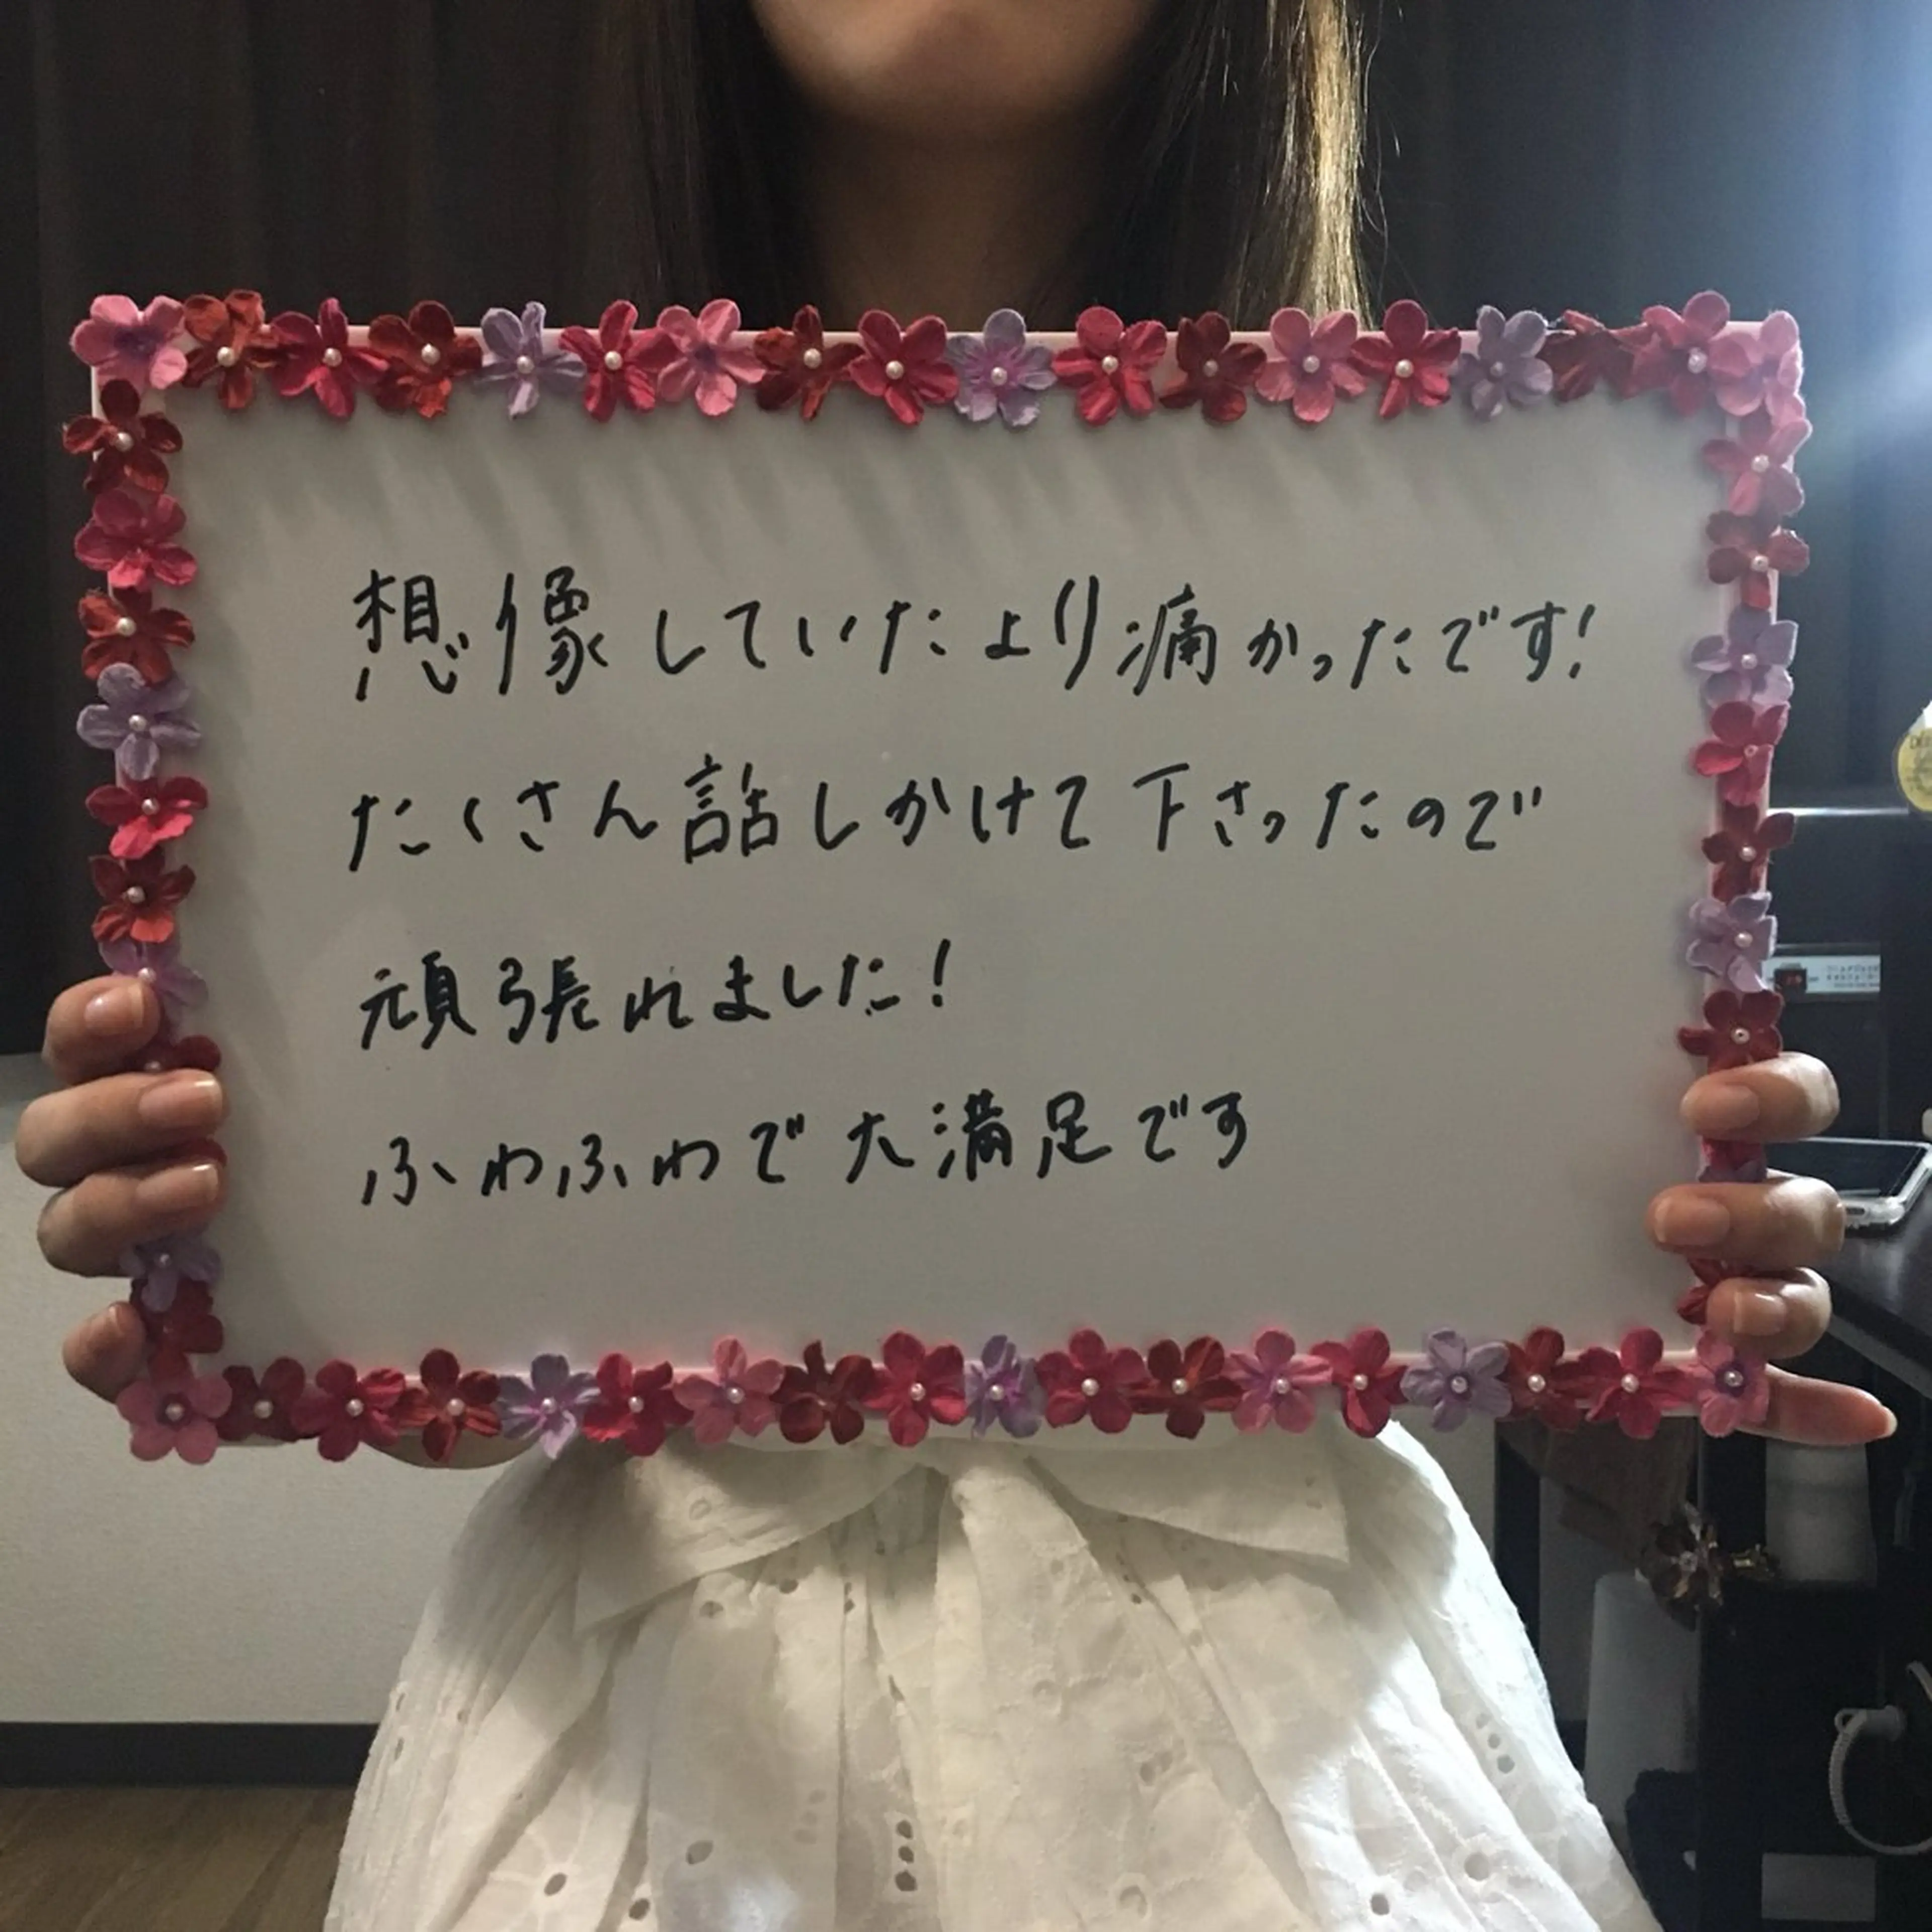 想像していたより痛かったです!
たくさん話しかけて下さったので
頑張れました!
ふわふわで大満足です